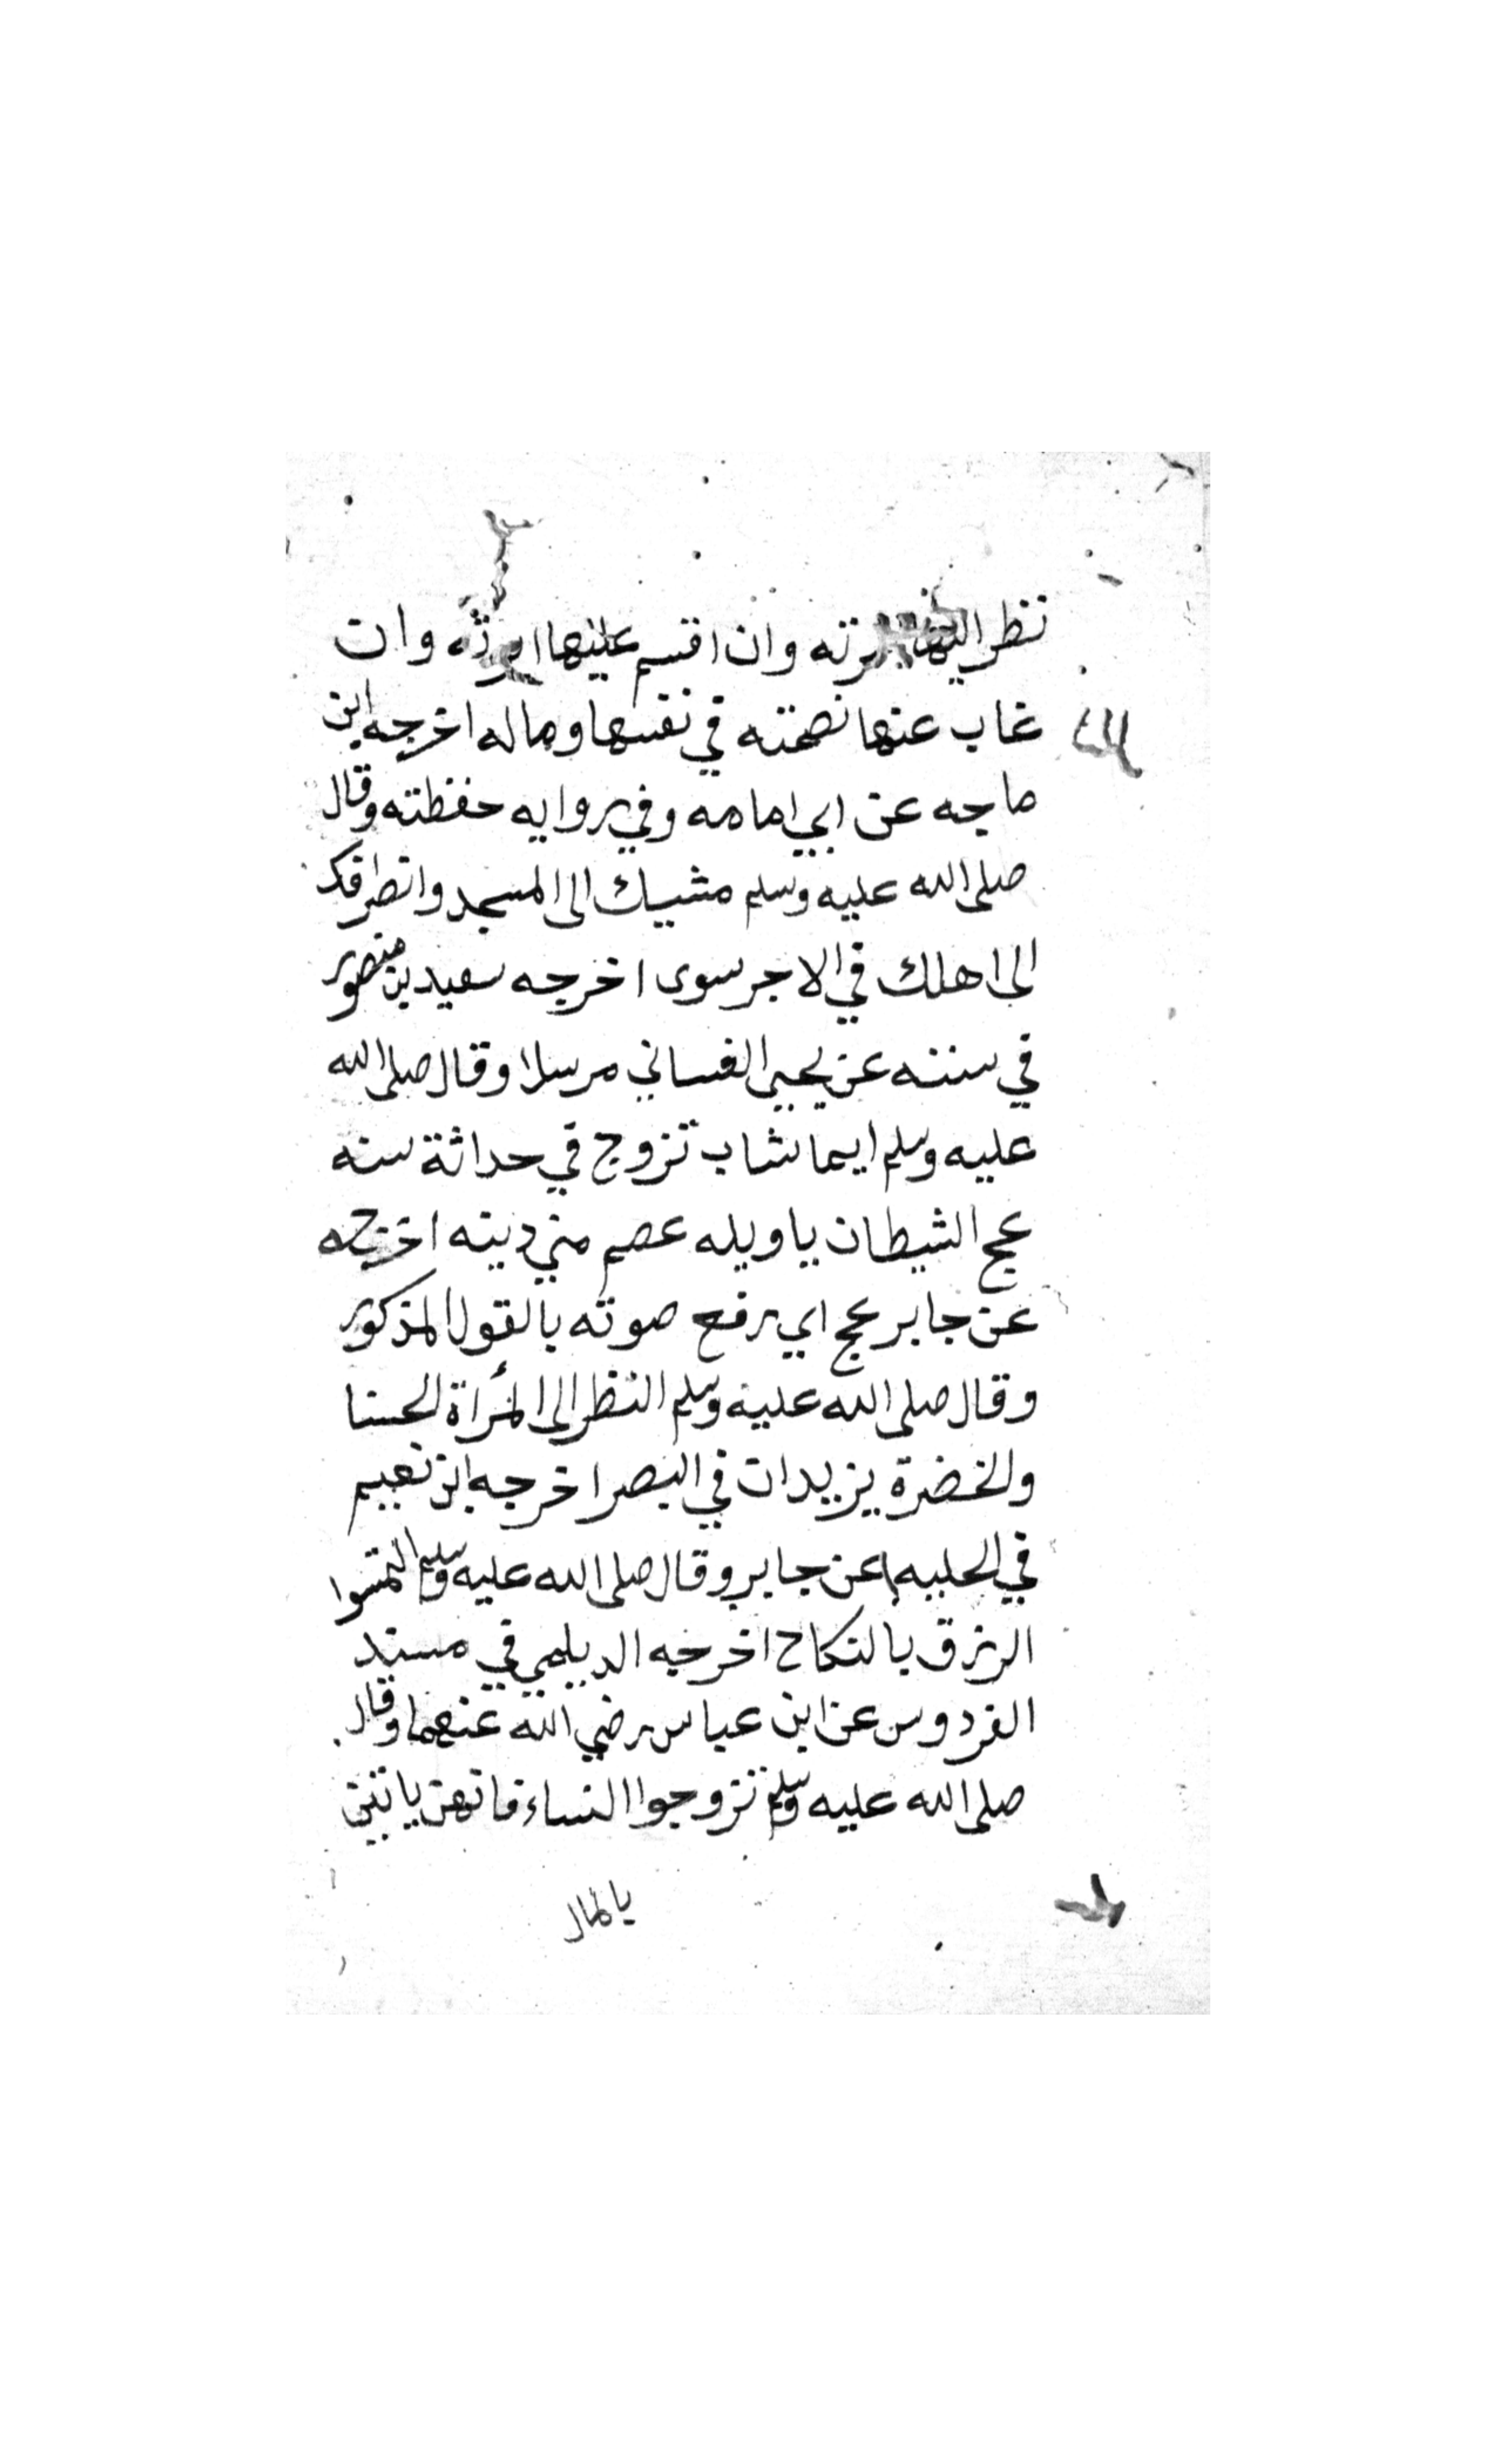 نظر اليها سرته وان اقسم عليها ابرته وان
غاب عنها نصحته في نفسها وماله اخرجه ابن
ماجه عن ابي امامه وفي روايه حفظته وقال
صلى الله عليه وسلم مشيك الى المسجد وانصرافك
الى اهلك في الاجر سوى اخرجه سعيد بن منصور
في سننه عن يحيى الغساني مرسلا وقال صلى الله
عليه وسلم ايما شاب تزوج في حداثة سنه
عج الشيطان يا ويله عصم مني دينه اخرجه
عن جابر عج اي رفع صوته بالقول المذكور
وقال صلى الله عليه وسلم النظر الى المرأة الحسنا
والخضرة يزيدان في البصر اخرجه ابن نعيم
في الحليه عن جابر وقال صلى الله عليه وسلم التمسوا
الرزق بالنكاح اخرجه الديلمي في مسند
الفردوس عن ابن عباس رضي الله عنهما وقال
صلى الله عليه وسلم تزوجوا النساء فانهن ياتين
بالمال